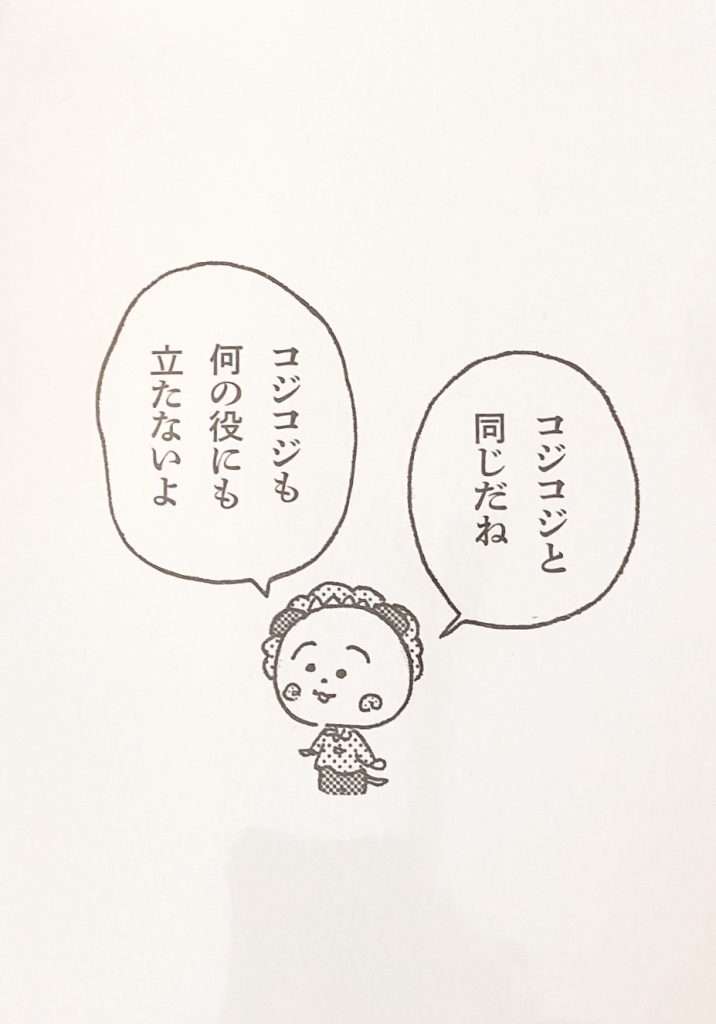 コジコジと
同じだね
コジコジも
何の役にも
立たないよ